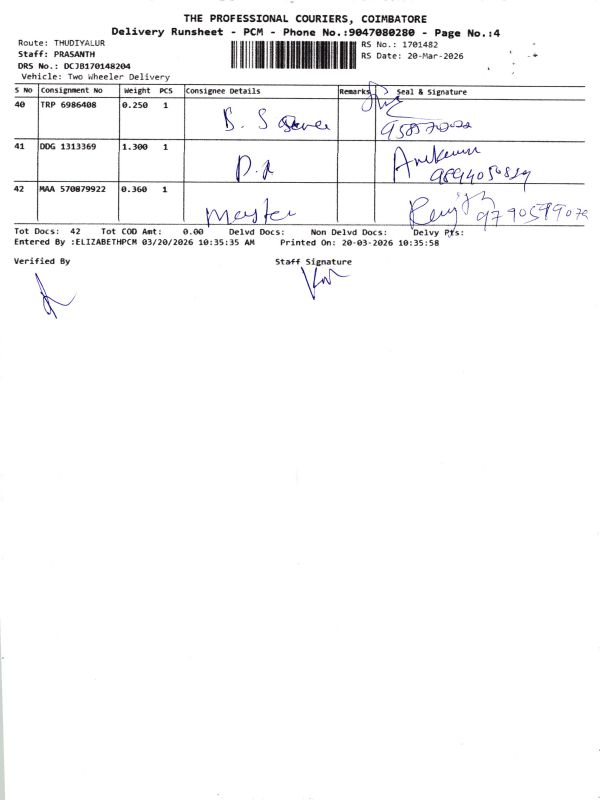 THE PROFESSIONAL COURIERS, COIMBATORE
Delivery Runsheet - PCM - Phone No.:9047080280 - Page No.:4
Route: THUDIYALUR
Staff: PRASANTH
DRS No.: DCJB170148204
Vehicle: Two Wheeler Delivery
RS No.: 1701482
RS Date: 20-Mar-2026
S No Consignment No Weight PCS Consignee Details Remarks Seal & Signature
40 TRP 6986408 0.250 1 B. S
41 DDG 1313369 1.300 1
42 MAA 570879922 0.360 1 Master
Tot Docs: 42 Tot COD Amt: 0.00 Delvd Docs: Non Delvd Docs: Delvy Pts:
Entered By :ELIZABETHPCM 03/20/2026 10:35:35 AM Printed On: 20-03-2026 10:35:58
Verified By Staff Signature